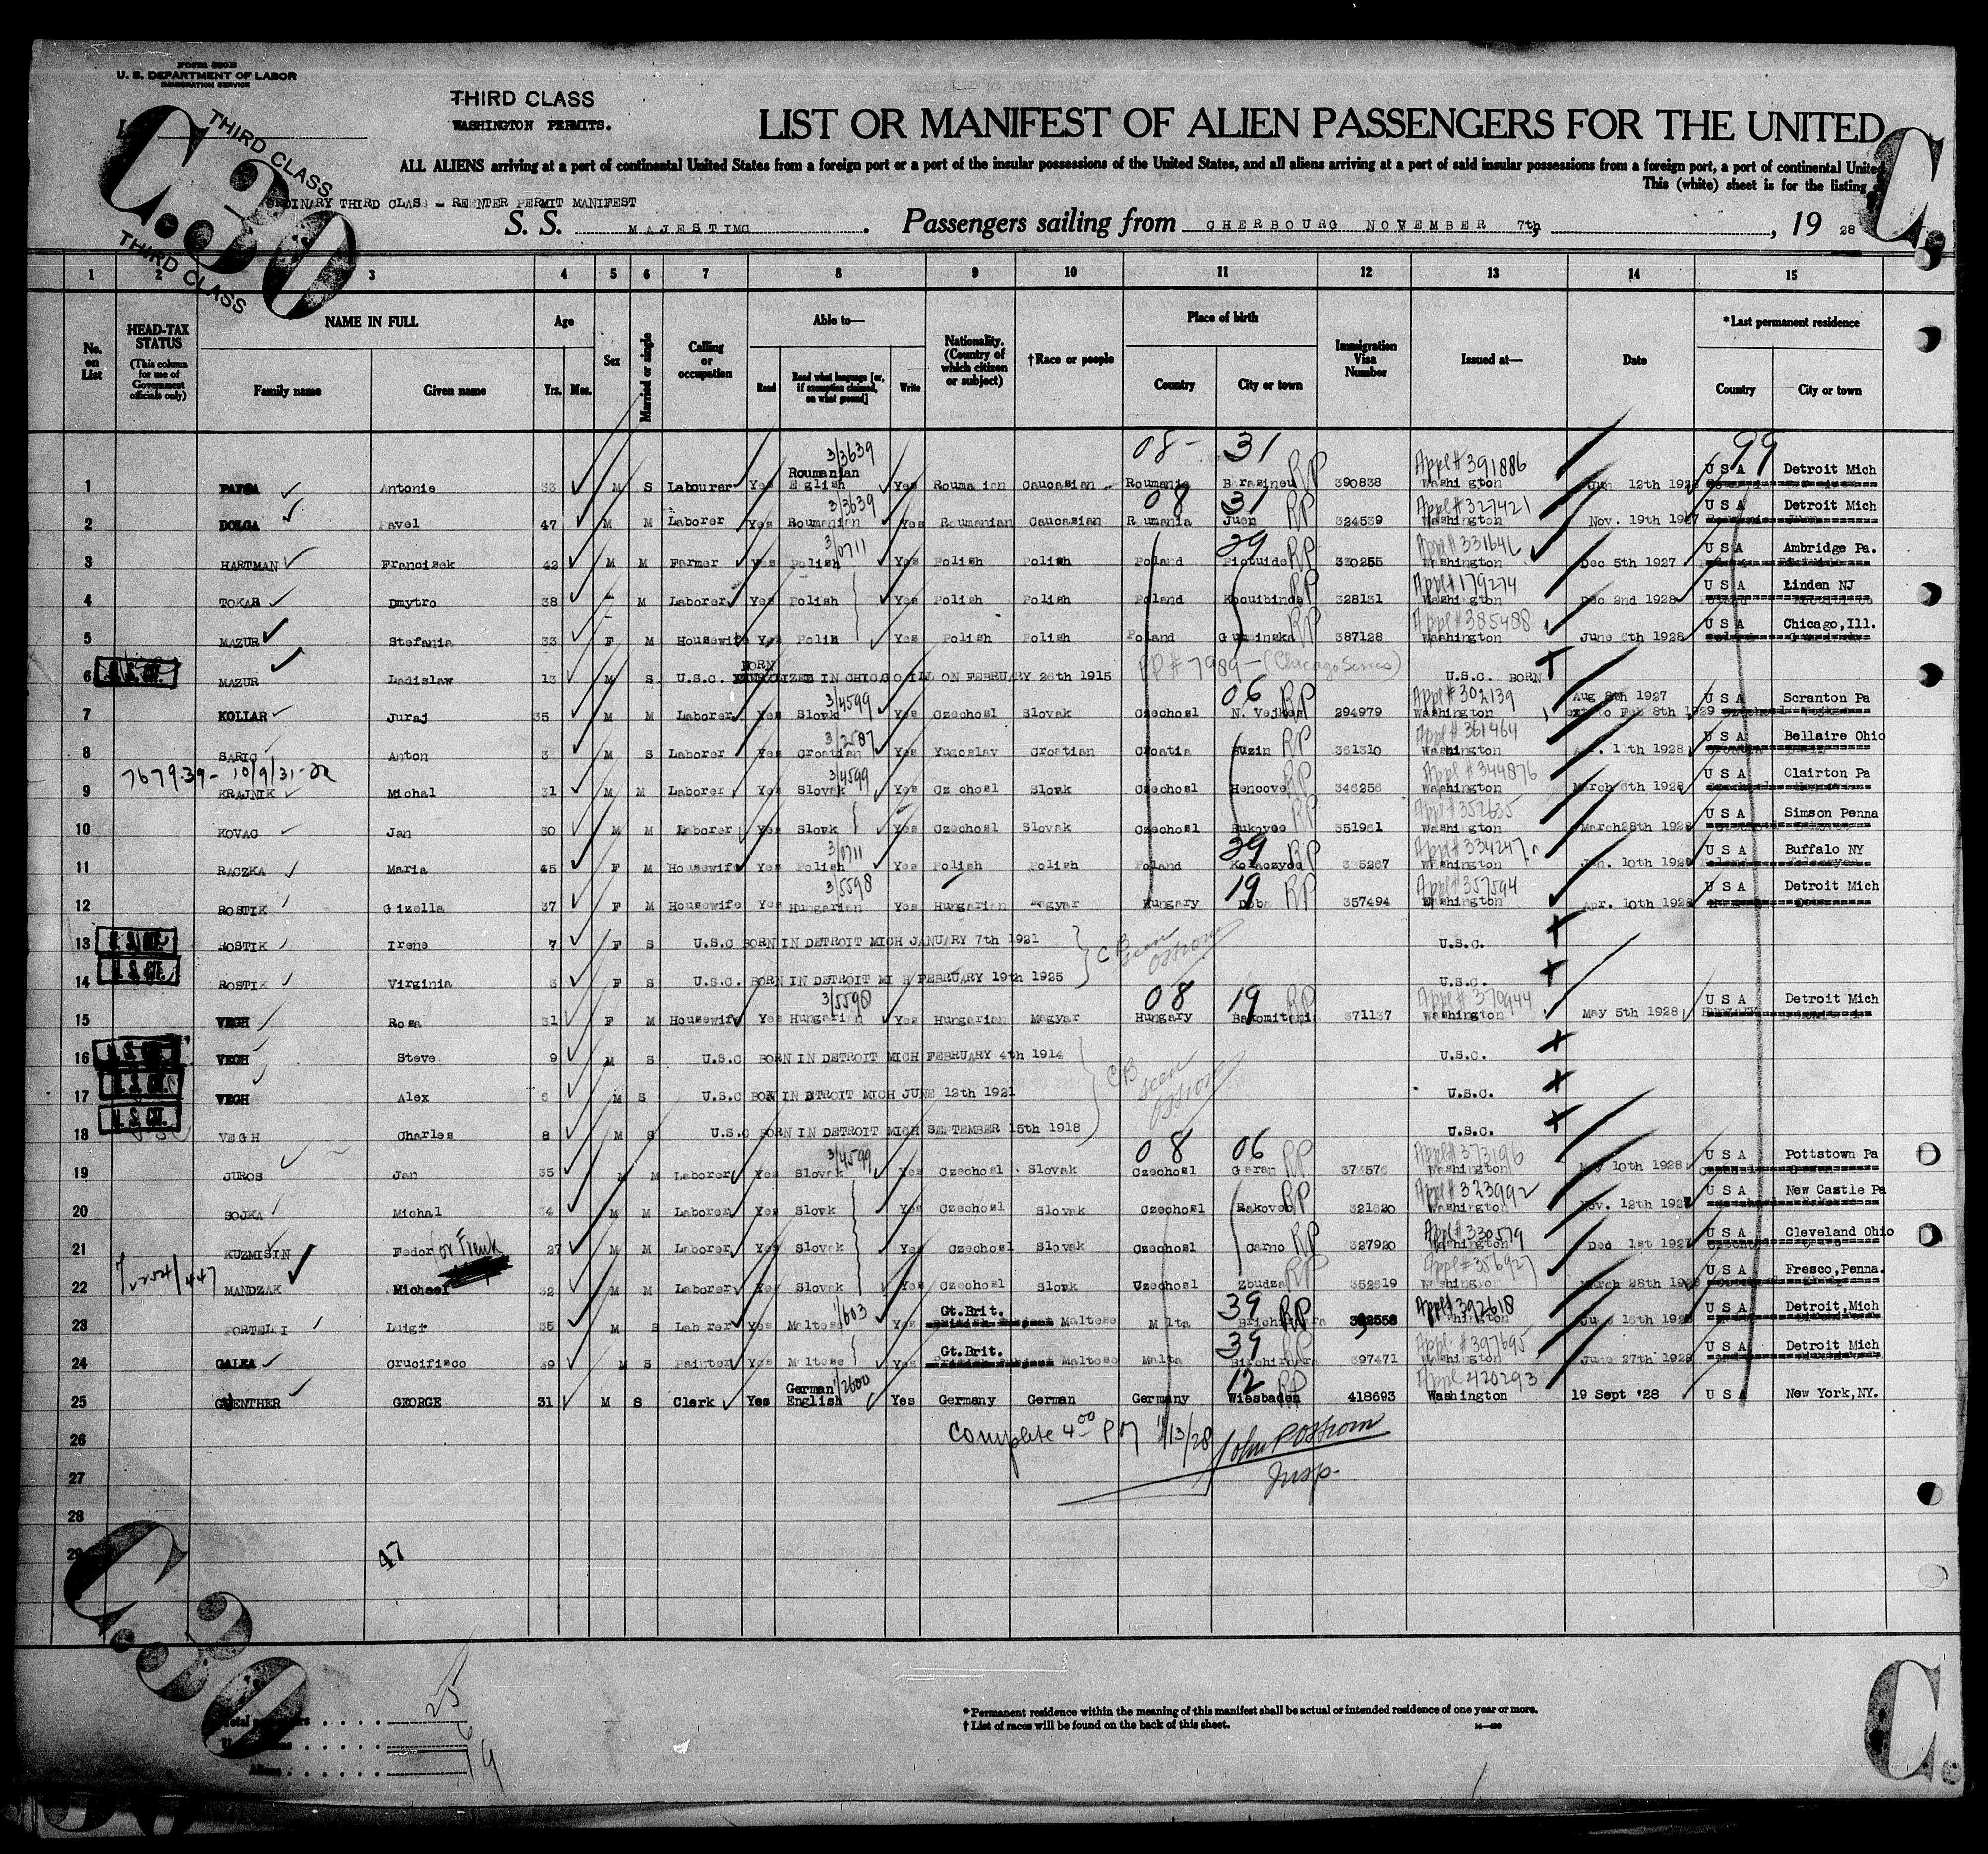 Form 500B
U. S. DEPARTMENT OF LABOR
IMMIGRATION SERVICE
THIRD CLASS
WASHINGTON PERMITS.
C.30
THIRD CLASS
THIRD CLASS
LIST OR MANIFEST OF ALIEN PASSENGERS FOR THE UNITED
C.
ALL ALIENS arriving at a port of continental United States from a foreign port or a port of the insular possessions of the United States, and all aliens arriving at a port of said insular possessions from a foreign port, a port of continental United
This (white) sheet is for the listing
ORDINARY THIRD CLASS - REENTER PERMIT MANIFEST
S. S. MAJESTIMC. Passengers sailing from CHERBOURG NOVEMBER 7th, 19 28
1 2 3 4 5 6 7 8 9 10 11 12 13 14 15
No. on List
HEAD-TAX STATUS (This column for use of Government officials only)
NAME IN FULL Family name Given name
Age Yrs. Mos.
Sex
Married or single
Calling or occupation
Able to— Read Read what language [or, if exemption claimed, on what ground] Write
Nationality. (Country of which citizen or subject)
†Race or people
Place of birth Country City or town
Immigration Visa Number
Issued at—
Date
*Last permanent residence Country City or town
08- 31 99
3/3639 Appl# 391886
1 Antonie 33 M S Labourer Yes Roumanian English Yes Rouma ian Caucasian Roumania Barasineu RP 390838 Washington Jun 12th 1928 U S A Detroit Mich
3/3639 08 31 Appl# 327421
2 DOLGA Pavel 47 M M Laborer Yes Roumanian Yes Roumanian Caucasian R umania Juen RP 324539 Washington Nov. 19th 1927 U S A Detroit Mich
3/0711 29 Appl# 331646
3 HARTMAN Francisek 42 M M Farmer Yes Polish Yes Polish Polish Poland RP 330255 Washington Dec 5th 1927 U S A Ambridge Pa.
Appl# 179274
4 TOKAR Dmytro 38 M Laborer Yes Polish Yes Polish Polish Poland RP 328131 Washington Dec 2nd 1928 U S A Linden NJ
Appl# 385488
5 MAZUR Stefania 33 F M Housewife Yes Polih Yes Polish Polish Poland Guminska RP 387128 Washington June 6th 1928 U S A Chicago,Ill.
6 MAZUR Ladislaw 13 M S U.S.C. BORN IN CHICAGO ILL ON FEBRUARY 26th 1915 PP# 7989 - (Chicago Series) U.S.C. BORN
3/4599 06 RP Appl# 302139 Aug 8th 1927
7 KOLLAR Juraj 35 M M Laborer Yes Slovk Yes Czechosl Slovak Czechosl N. Vejkea 294979 Washington ext to Feb 8th 1929 U S A Scranton Pa
3/2587 Appl# 361464
8 SARIC Anton M S Laborer Yes Croatian Yes Yugoslav Croatian Croatia Buzin RP 361310 Washington Apr. 11th 1928 U S A Bellaire Ohio
7679.39- 10/9/31-22
3/4599 Appl# 344876
9 KRAJNIK Michal 31 M M Laborer Yes Slovak Yes Cz chosl Slovak Czechosl Hencove RP 346256 Washington March 6th 1928 U S A Clairton Pa
Appl# 352635
10 KOVAC Jan 30 M M Laborer Yes Slovk Yes Czechosl Slovak Czechosl Rukovec RP 351961 Washington March28th 1928 U S A Simson Penna
3/0711 29 Appl# 334247
11 RACZKA Maria 45 F M Housewife Yes Polish Yes Polish Polish Poland Kolaczyce RP 335267 Washington Jan. 10th U S A Buffalo NY
3/5598 19 RP Appl# 357594
12 ROSTIK Gizella 37 F M Housewife Yes Hungarian Yes Hungarian Magyar Hungary Doba 357494 Washington Apr. 10th 1928 U S A Detroit Mich
13 U.S.CIT. ROSTIK Irene 7 F S U.S.C BORN IN DETROIT MICH JANUARY 7th 1921 CB seen Ostrom U.S.C.
14 U.S.CIT. ROSTIK Virginia 3 F S U.S.C. BORN IN DETROIT MI H FEBRUARY 19th 1925 U.S.C.
3/5598 08 19 RP Appl# 370944
15 VEGH Rosa 31 F M Housewife Yes Hungarian Yes Hungarian Magyar Hungary 371137 Washington May 5th 1928 U S A Detroit Mich
16 U.S.CIT. VEGH Steve 9 M S U.S.C BORN IN DETROIT MICH FEBRUARY 4th 1914 CB seen Ostrom U.S.C.
17 U.S.CIT. VEGH Alex 6 M S U.S.C BORN IN DETROIT MICH JUNE 12th 1921 U.S.C.
18 U.S.CIT. VEGH Charles 8 M S U.S.C BORN IN DETROIT MICH SEPTEMBER 15th 1918 U.S.C.
3/4599 08 06 Appl# 373196
19 JUROS Jan 35 M M Laborer Yes Slovak Yes Czechosl Slovak Czechosl Garan RP 373576 Washington May 10th 1928 U S A Pottstown Pa
Appl# 323992
20 SOJKA Michal M M Laborer Yes Slovk Yes Czechosl Slovak Czechosl Rakovec RP 321620 Washington Nov. 12th 1927 U S A New Castle Pa
Appl# 330579
21 KUZMISIN Fedor (or Frank 27 M M Laborer Yes Slovak Yes Czechosl Slovak Czechosl Carno RP 327920 Washington Dec 1st 1927 U S A Cleveland Ohio
Appl# 356927
22 MANDZAK Michael 32 M M Laborer Yes Slovak Yes Czechosl Slovk Czechosl Zbudza RP 352619 Washington March 28th U S A Fresco,Penna.
1603 Gt.Brit. 39 RP Appl# 392618
23 Luigi 35 M S Lab rer Yes Maltese Yes Maltese Malta 392558 U S A Detroit,Mich
Gt.Brit. 39 Appl. #397695
24 GALEA Crucifisco 39 M S Painter Yes Maltese Yes Maltese Malta Birchircara RP 397471 Washington June 27th 1928 U S A Detroit Mich
2600 12 RP Appl 420293
25 GUENTHER GEORGE 31 M S Clerk Yes German English Yes Germany German Germany Wiesbaden 418693 Washington 19 Sept '28 U S A New York,NY.
26 Complete 4:00 PM 11/13/28 John P Ostrom
27 Insp.
28
29 47
C.30
Total passengers . . . . . 25
6
Aliens . . . . . . 19
* Permanent residence within the meaning of this manifest shall be actual or intended residence of one year or more.
† List of races will be found on the back of this sheet.
C.